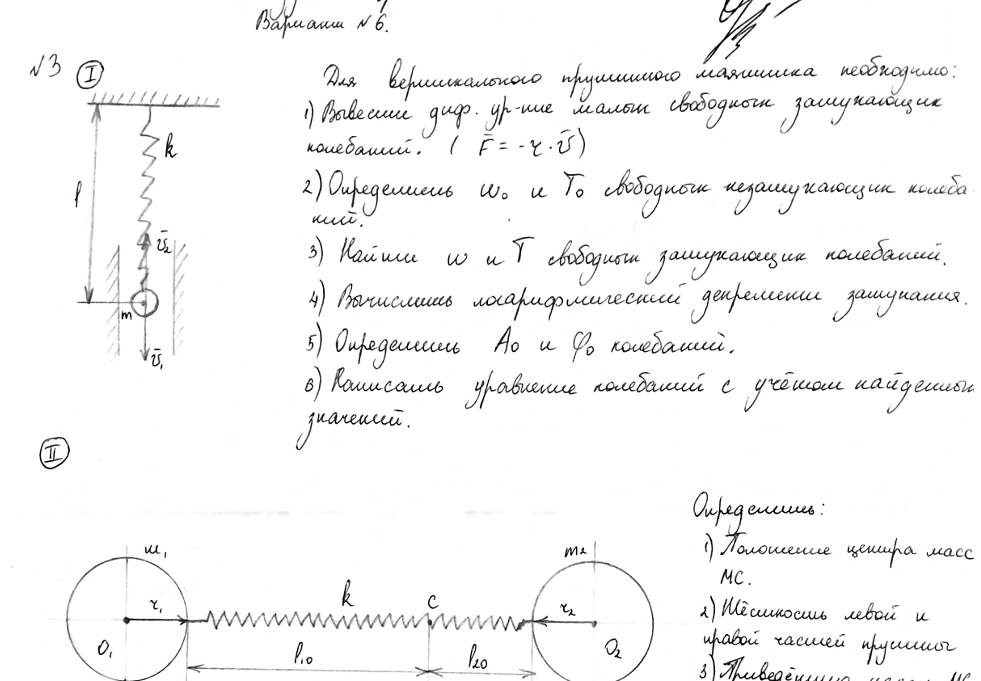 Вариант №6.
№3 I
Для вертикального пружинного маятника необходимо:
1) Вывести диф. ур-ние малых свободных затухающих
колебаний. ( F̄ = -r · v̄ )
2) Определить ω₀ и T₀ свободных незатухающих колеба-
ний.
3) Найти ω и T свободных затухающих колебаний.
4) Вычислить логарифмический декремент затухания.
5) Определить A₀ и φ₀ колебаний.
6) Написать уравнение колебаний с учётом найденных
значений.
k
l
v̄₂
m
v̄₁
II
Определить:
1) Положение центра масс
МС.
2) Жёсткость левой и
правой частей пружины
3) Приведённую массу МС
m₁
m₂
k
C
r₁
r₂
O₁
O₂
l₁₀
l₂₀